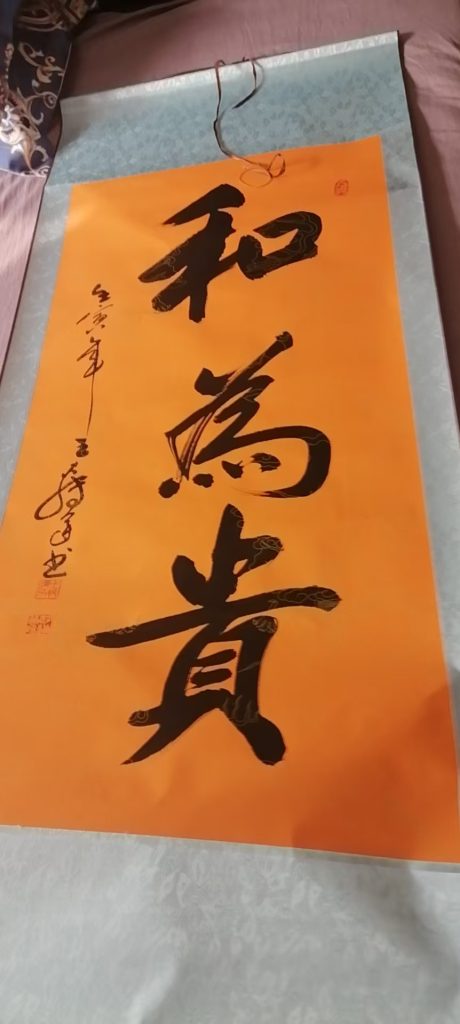 和為貴
壬寅年 王 书